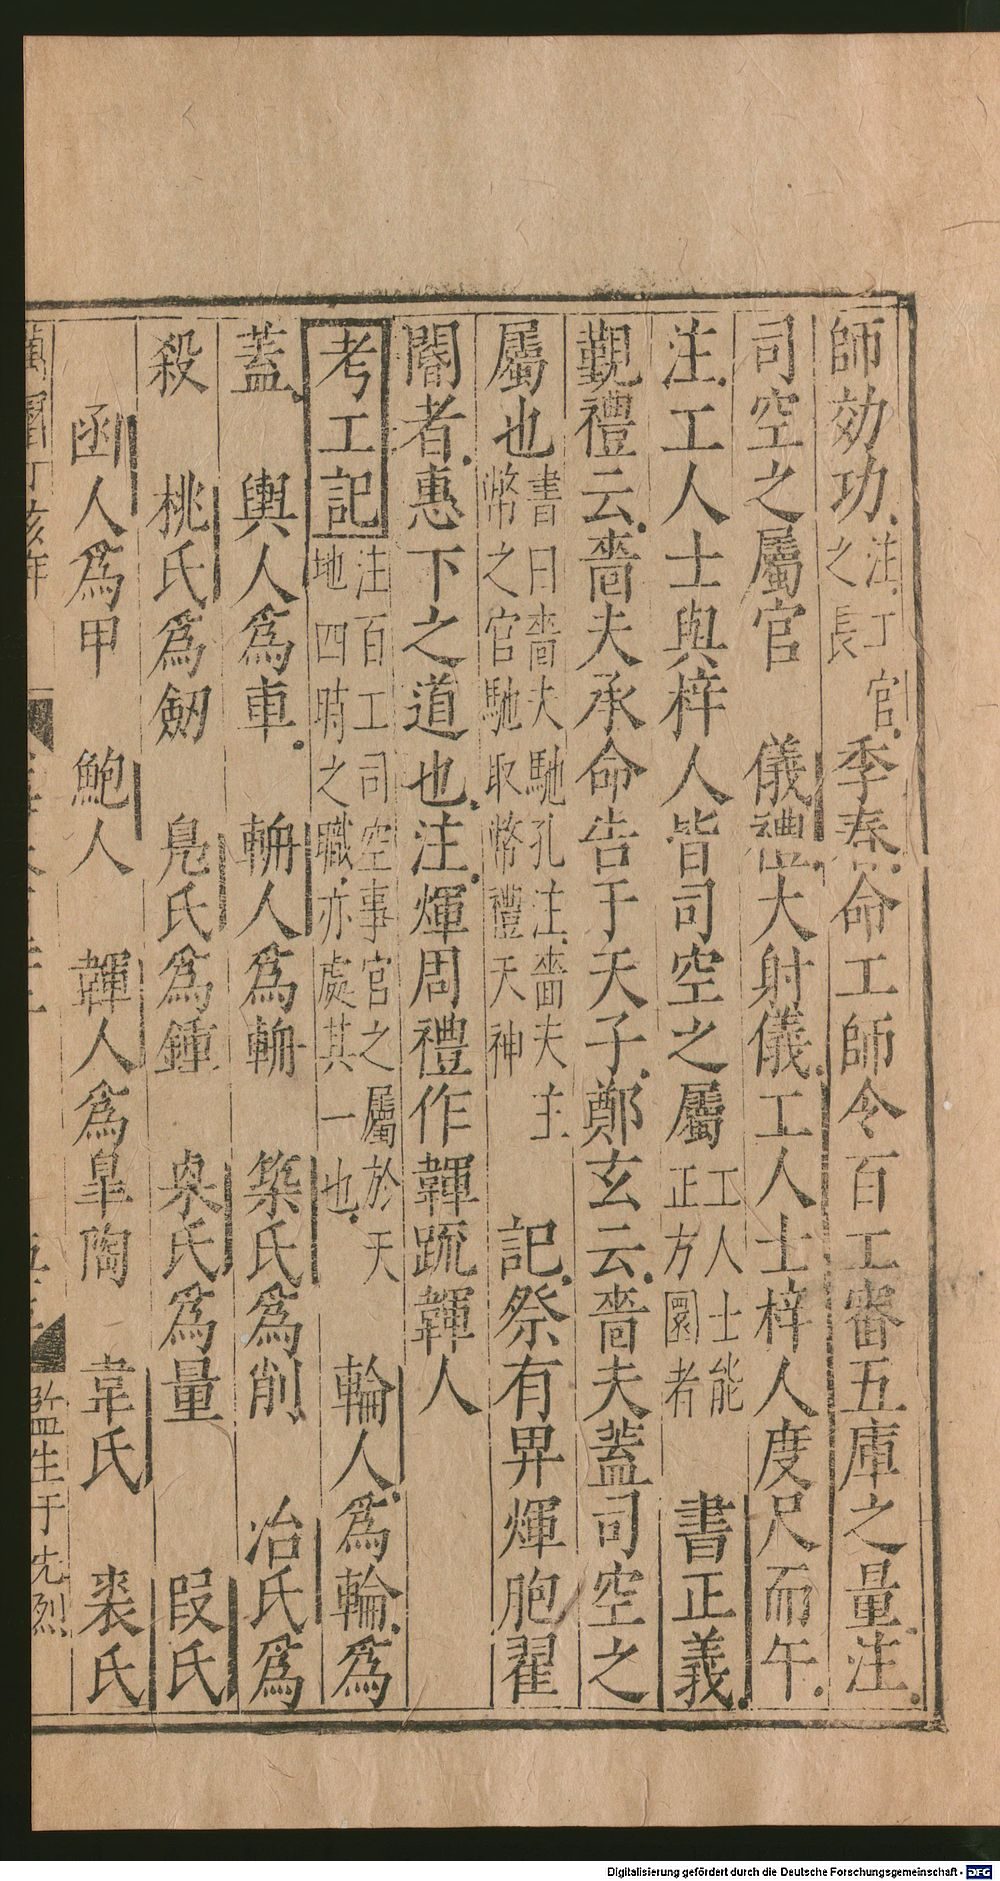 師効功注工官之長季春命工師令百工審五庫之量注
司空之屬官 儀禮大射儀工人士梓人度尺而午
注工人士與梓人皆司空之屬工人士能正方圜者 書正義
覲禮云嗇夫承命告于天子鄭玄云嗇夫蓋司空之
屬也書曰嗇夫馳孔注嗇夫主幣之官馳取幣禮天神 記祭有畀煇胞翟
閽者惠下之道也注煇周禮作韗疏韗人
考工記注百工司空事官之屬於天地四時之職亦處其一也 輪人爲輪爲
蓋 輿人爲車 輈人爲輈 築氏爲削 冶氏爲
殺 桃氏爲劒 鳧氏爲鍾 㮚氏爲量 段氏
函人爲甲 鮑人 韗人爲臯陶 韋氏 裘氏
監生于允烈
Digitalisierung gefördert durch die Deutsche Forschungsgemeinschaft - DFG